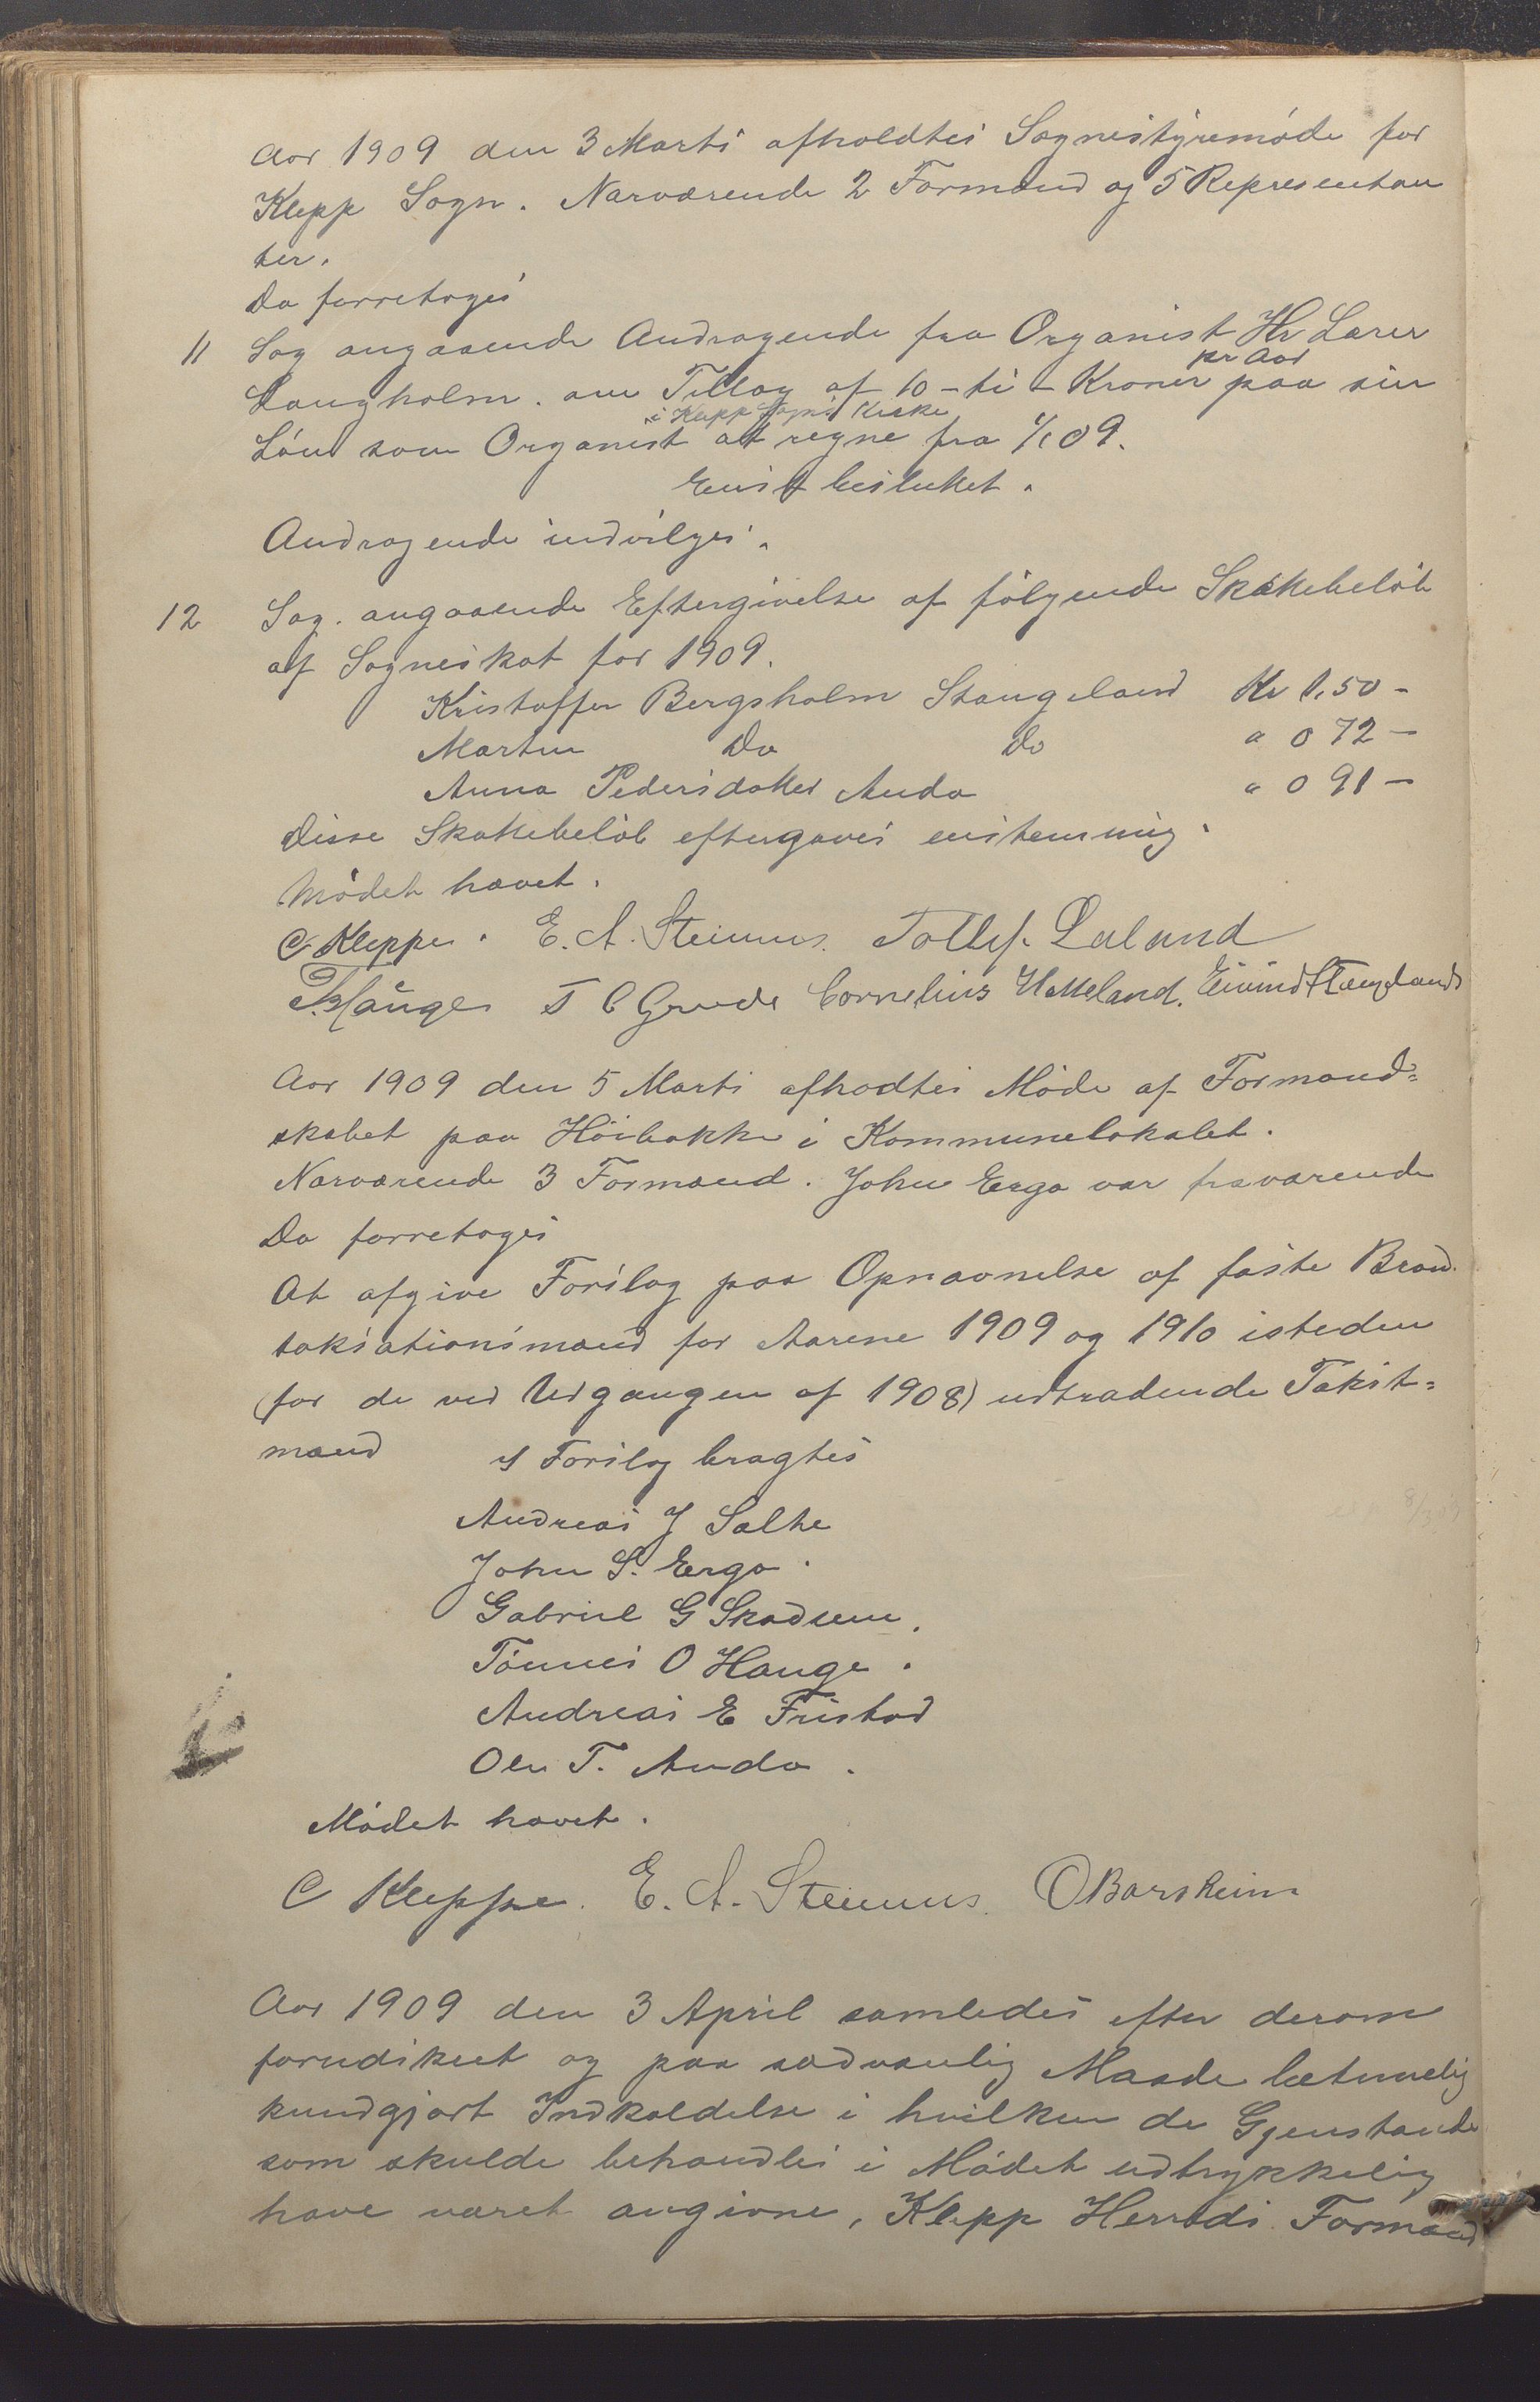 Aar 1909 den 3 Marts afholdtes Sognestyremøde for
Klepp Sogn. Nærværende 2 Formænd og 5 Representan
ter.
Da forretoges
11 Sag angaaende Andragende fra Organist Hr Lærer
Langholm. om Tillæg af 10 - ti - Kroner pr Aar paa sin
Løn som Organist i Klepp Sogns Kirke at regne fra 1/1 09.
Enst besluttet.
Andragende indvilges.
12 Sag. angaaende Eftergivelse af følgende Skattebeløb
af Sogneskat for 1909.
Kristoffer Bergsholm Stangeland Kr 1,50 -
Martin Do Do " 0 72 -
Anna Pedersdatter Anda " 0 91 -
Disse Skattebeløb eftergaves enstemmig.
Mødet hævet.
C Kleppe. E. A. Steinnes. Tollef. Laland
T. Hauge T C Grude Cornelius Hatteland. Eivind Stangeland
Aar 1909 den 5 Marts afhodtes Møde af Formand=
skabet paa Høibakke i Kommunelokalet.
Nærværende 3 Formænd. John Erga var fraværende
Da forretoges
At afgive Forslag paa Opnævnelse af faste Brand
taksationsmænd for Aarene 1909 og 1910 isteden
(for de ved Udgangen af 1908) udtrædende Takst=
mænd I Forslag bragtes
Andreas J Salte
John S. Erga.
Gabriel G Skadsem.
Tønnes O Hauge.
Andreas E Fristad
Ole T. Anda.
Mødet hævet.
C Kleppe. E. A. Steinnes. O Borsheim
Aar 1909 den 3 April samledes efter derom
forudskeet og paa sædvanlig Maade betimelig
kundgjort Indkaldelse i hvilken de Gjenstande
som skulde behandles i Mødet udtrykkelig
have været angivne, Klepp Herreds Formænd